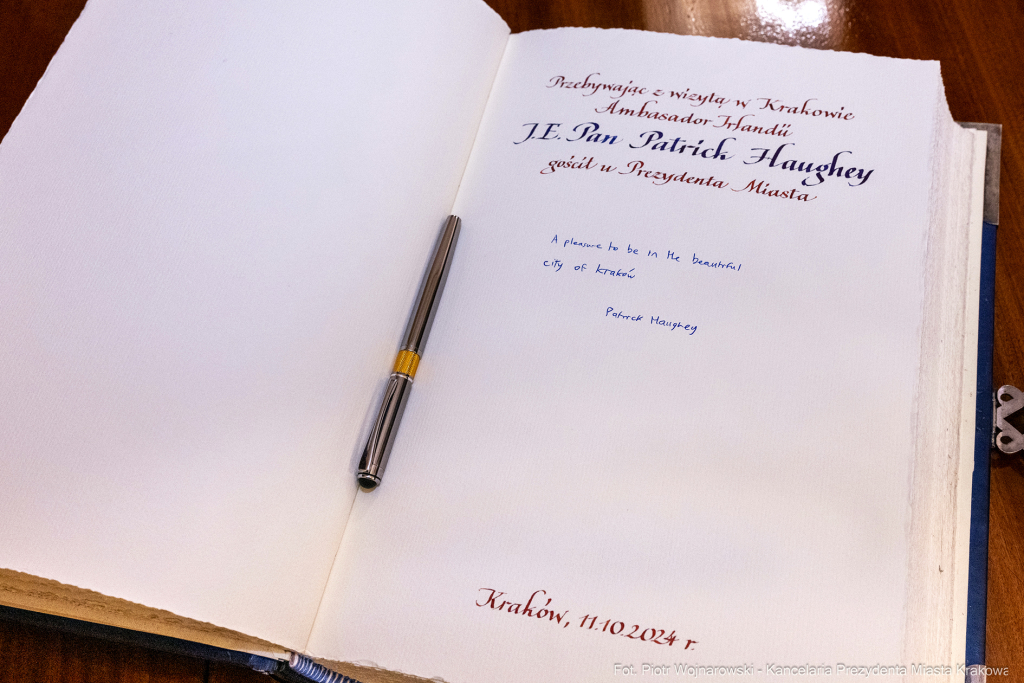 Przebywając z wizytą w Krakowie
Ambasador Irlandii
J.E. Pan Patrick Haughey
gościł u Prezydenta Miasta
A pleasure to be in the beautiful
city of Kraków
Patrick Haughey
Kraków, 11.10.2024 r.
Fot. Piotr Wojnarowski - Kancelaria Prezydenta Miasta Krakowa